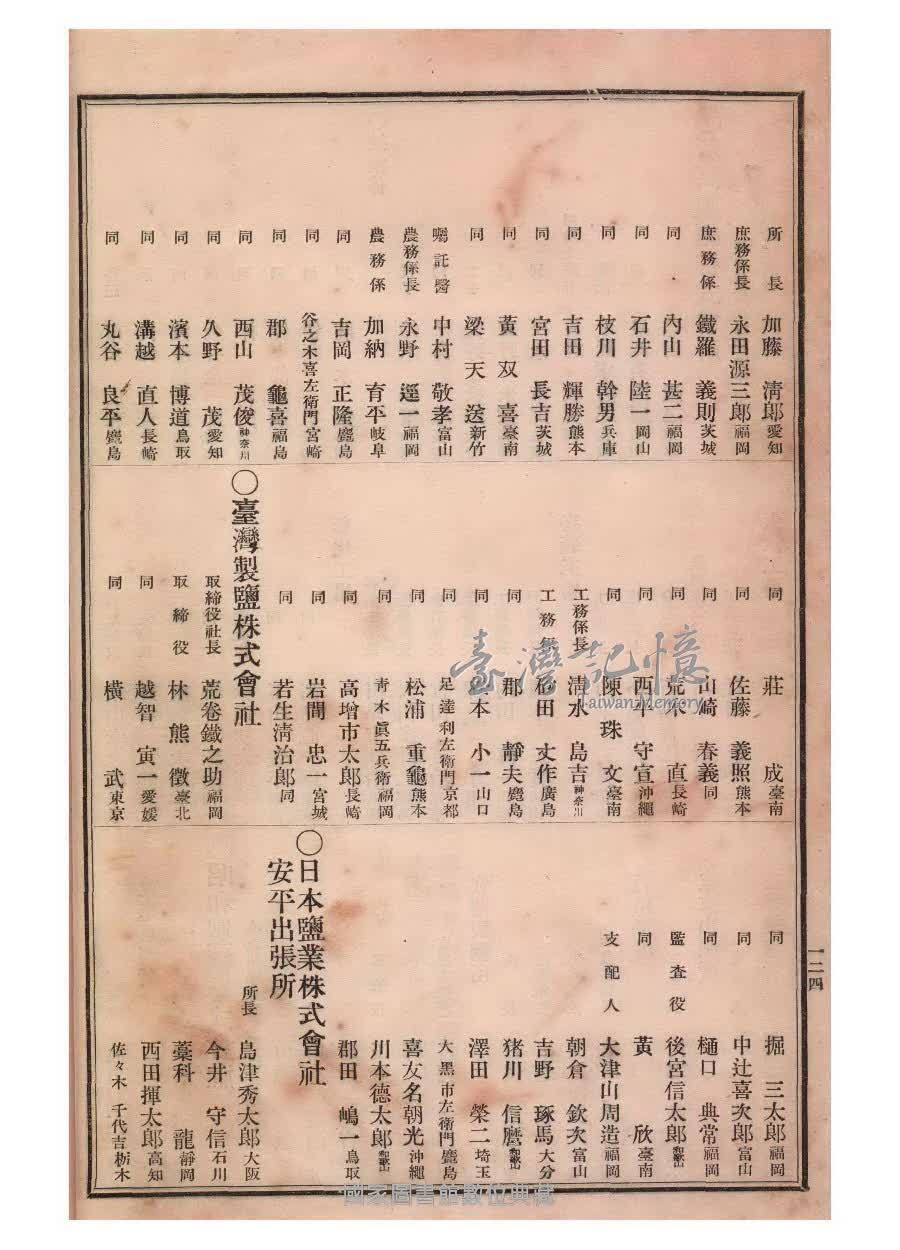 所長 加藤 清郎 愛知
庶務係長 永田源三郎 福岡
庶務係 鐵羅 義則 茨城
同 內山 甚二 福岡
同 石井 陸一 岡山
同 枝川 幹男 兵庫
同 吉田 輝勝 熊本
同 宮田 長吉 茨城
同 黃双喜 臺南
同 梁天送 新竹
囑託醫 中村 敬孝 富山
農務係長 永野 逕一 福岡
農務係 加納 育平 岐阜
同 吉岡 正隆 鹿島
同 谷之木喜左衞門 宮崎
同 郡 龜喜 福島
同 西山 茂俊 神奈川
同 久野 茂 愛知
同 濱本 博道 鳥取
同 溝越 直人 長崎
同 丸谷 良平 鹿島
同 莊 成 臺南
同 佐藤 義照 熊本
同 山崎 春義 同
同 荒木 直 長崎
同 西平 守宣 沖繩
同 陳珠文 臺南
工務係長 清水 島吉 神奈川
工務係 田 丈作 廣島
同 郡 靜夫 鹿島
同 本 小一 山口
同 足達利左衞門 京都
同 松浦 重龜 熊本
同 青木眞五兵衞 福岡
同 高增市太郎 長崎
同 岩間 忠一 宮城
同 若生清治郎 同
〇臺灣製鹽株式會社
取締役社長 荒卷鐵之助 福岡
取締役 林熊徵 臺北
同 越智 寅一 愛媛
同 橫 武 東京
同 掘 三太郎 福岡
同 中辻喜次郎 富山
同 樋口 典常 福岡
監査役 後宮信太郎 和歌山
同 黃 欣 臺南
支配人 大津山周造 福岡
朝倉 欽次 富山
吉野 琢馬 大分
猪川 信麿 和歌山
澤田 榮二 埼玉
大黑市左衞門 鹿島
喜友名朝光 沖繩
川本德太郎 和歌山
郡田 嶋一 鳥取
〇日本鹽業株式會社
安平出張所
所長 島津秀太郎 大阪
今井 守信 石川
藁科 龍 靜岡
西田揮太郎 高知
佐々木 千代吉 栃木
一二四
臺灣記憶
Taiwan Memory
國家圖書館數位典藏